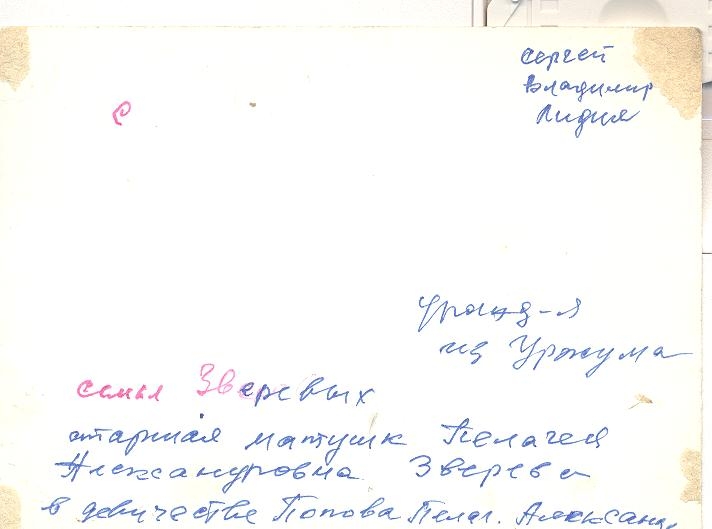 Сергей
Владимир
Лидия
урожд-я
из Уржума
семья Зверевых
старшая матушк Пелагея
Александровна Зверева
в девичестве Попова Пелаг. Александ.